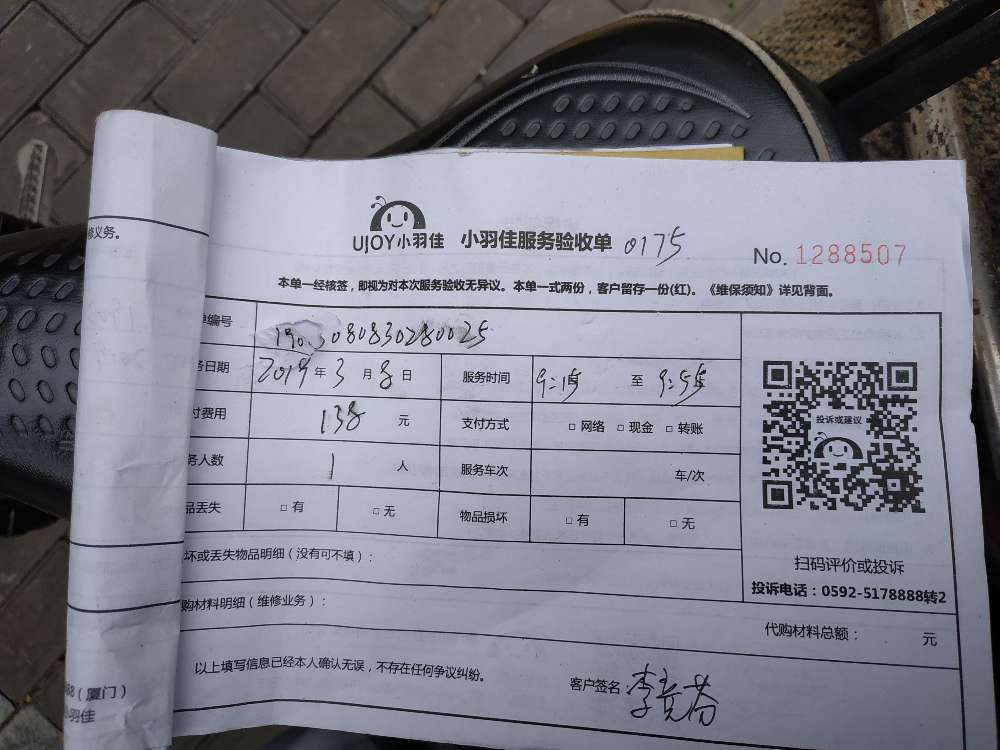 修义务。
UJOY小羽佳 小羽佳服务验收单 0175 No. 1288507
本单一经核签，即视为对本次服务验收无异议。本单一式两份，客户留存一份(红)。《维保须知》详见背面。
编号 1903080830280025
务日期 2019 年 3 月 8 日 服务时间 9:15 至 9:55
付费用 138 元 支付方式 □ 网络 □ 现金 □ 转账
务人数 1 人 服务车次 车/次
品丢失 □ 有 □ 无 物品损坏 □ 有 □ 无
投诉或建议
扫码评价或投诉
投诉电话：0592-5178888转2
坏或丢失物品明细（没有可不填）：
购材料明细（维修业务）：
代购材料总额： 元
以上填写信息已经本人确认无误，不存在任何争议纠纷。
客户签名：李
88（厦门）
小羽佳